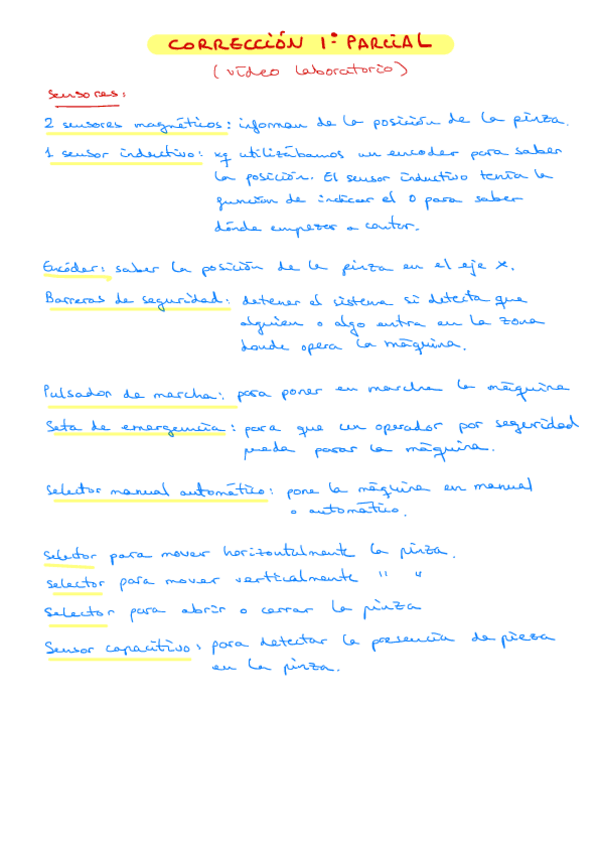 CORRECCIÓN 1º PARCIAL
(vídeo laboratorio)
Sensores:
2 sensores magnéticos: informan de la posición de la pinza.
1 sensor inductivo: xq utilizábamos un encoder para saber
la posición. El sensor inductivo tenía la
función de indicar el 0 para saber
dónde empezar a contar.
Encóder: saber la posición de la pinza en el eje x.
Barreras de seguridad: detener el sistema si detecta que
alguien o algo entra en la zona
donde opera la máquina.
Pulsador de marcha: para poner en marcha la máquina
Seta de emergencia: para que un operador por seguridad
pueda parar la máquina.
Selector manual automático: pone la máquina en manual
o automático.
Selector para mover horizontalmente la pinza.
Selector para mover verticalmente " "
Selector para abrir o cerrar la pinza
Sensor capacitivo: para detectar la presencia de pieza
en la pinza.